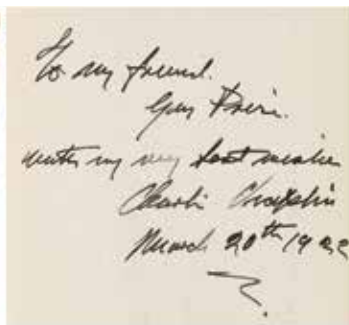 To my friend.
Guy Price.
with my very best wishes
Charlie Chaplin
March 20th 1922